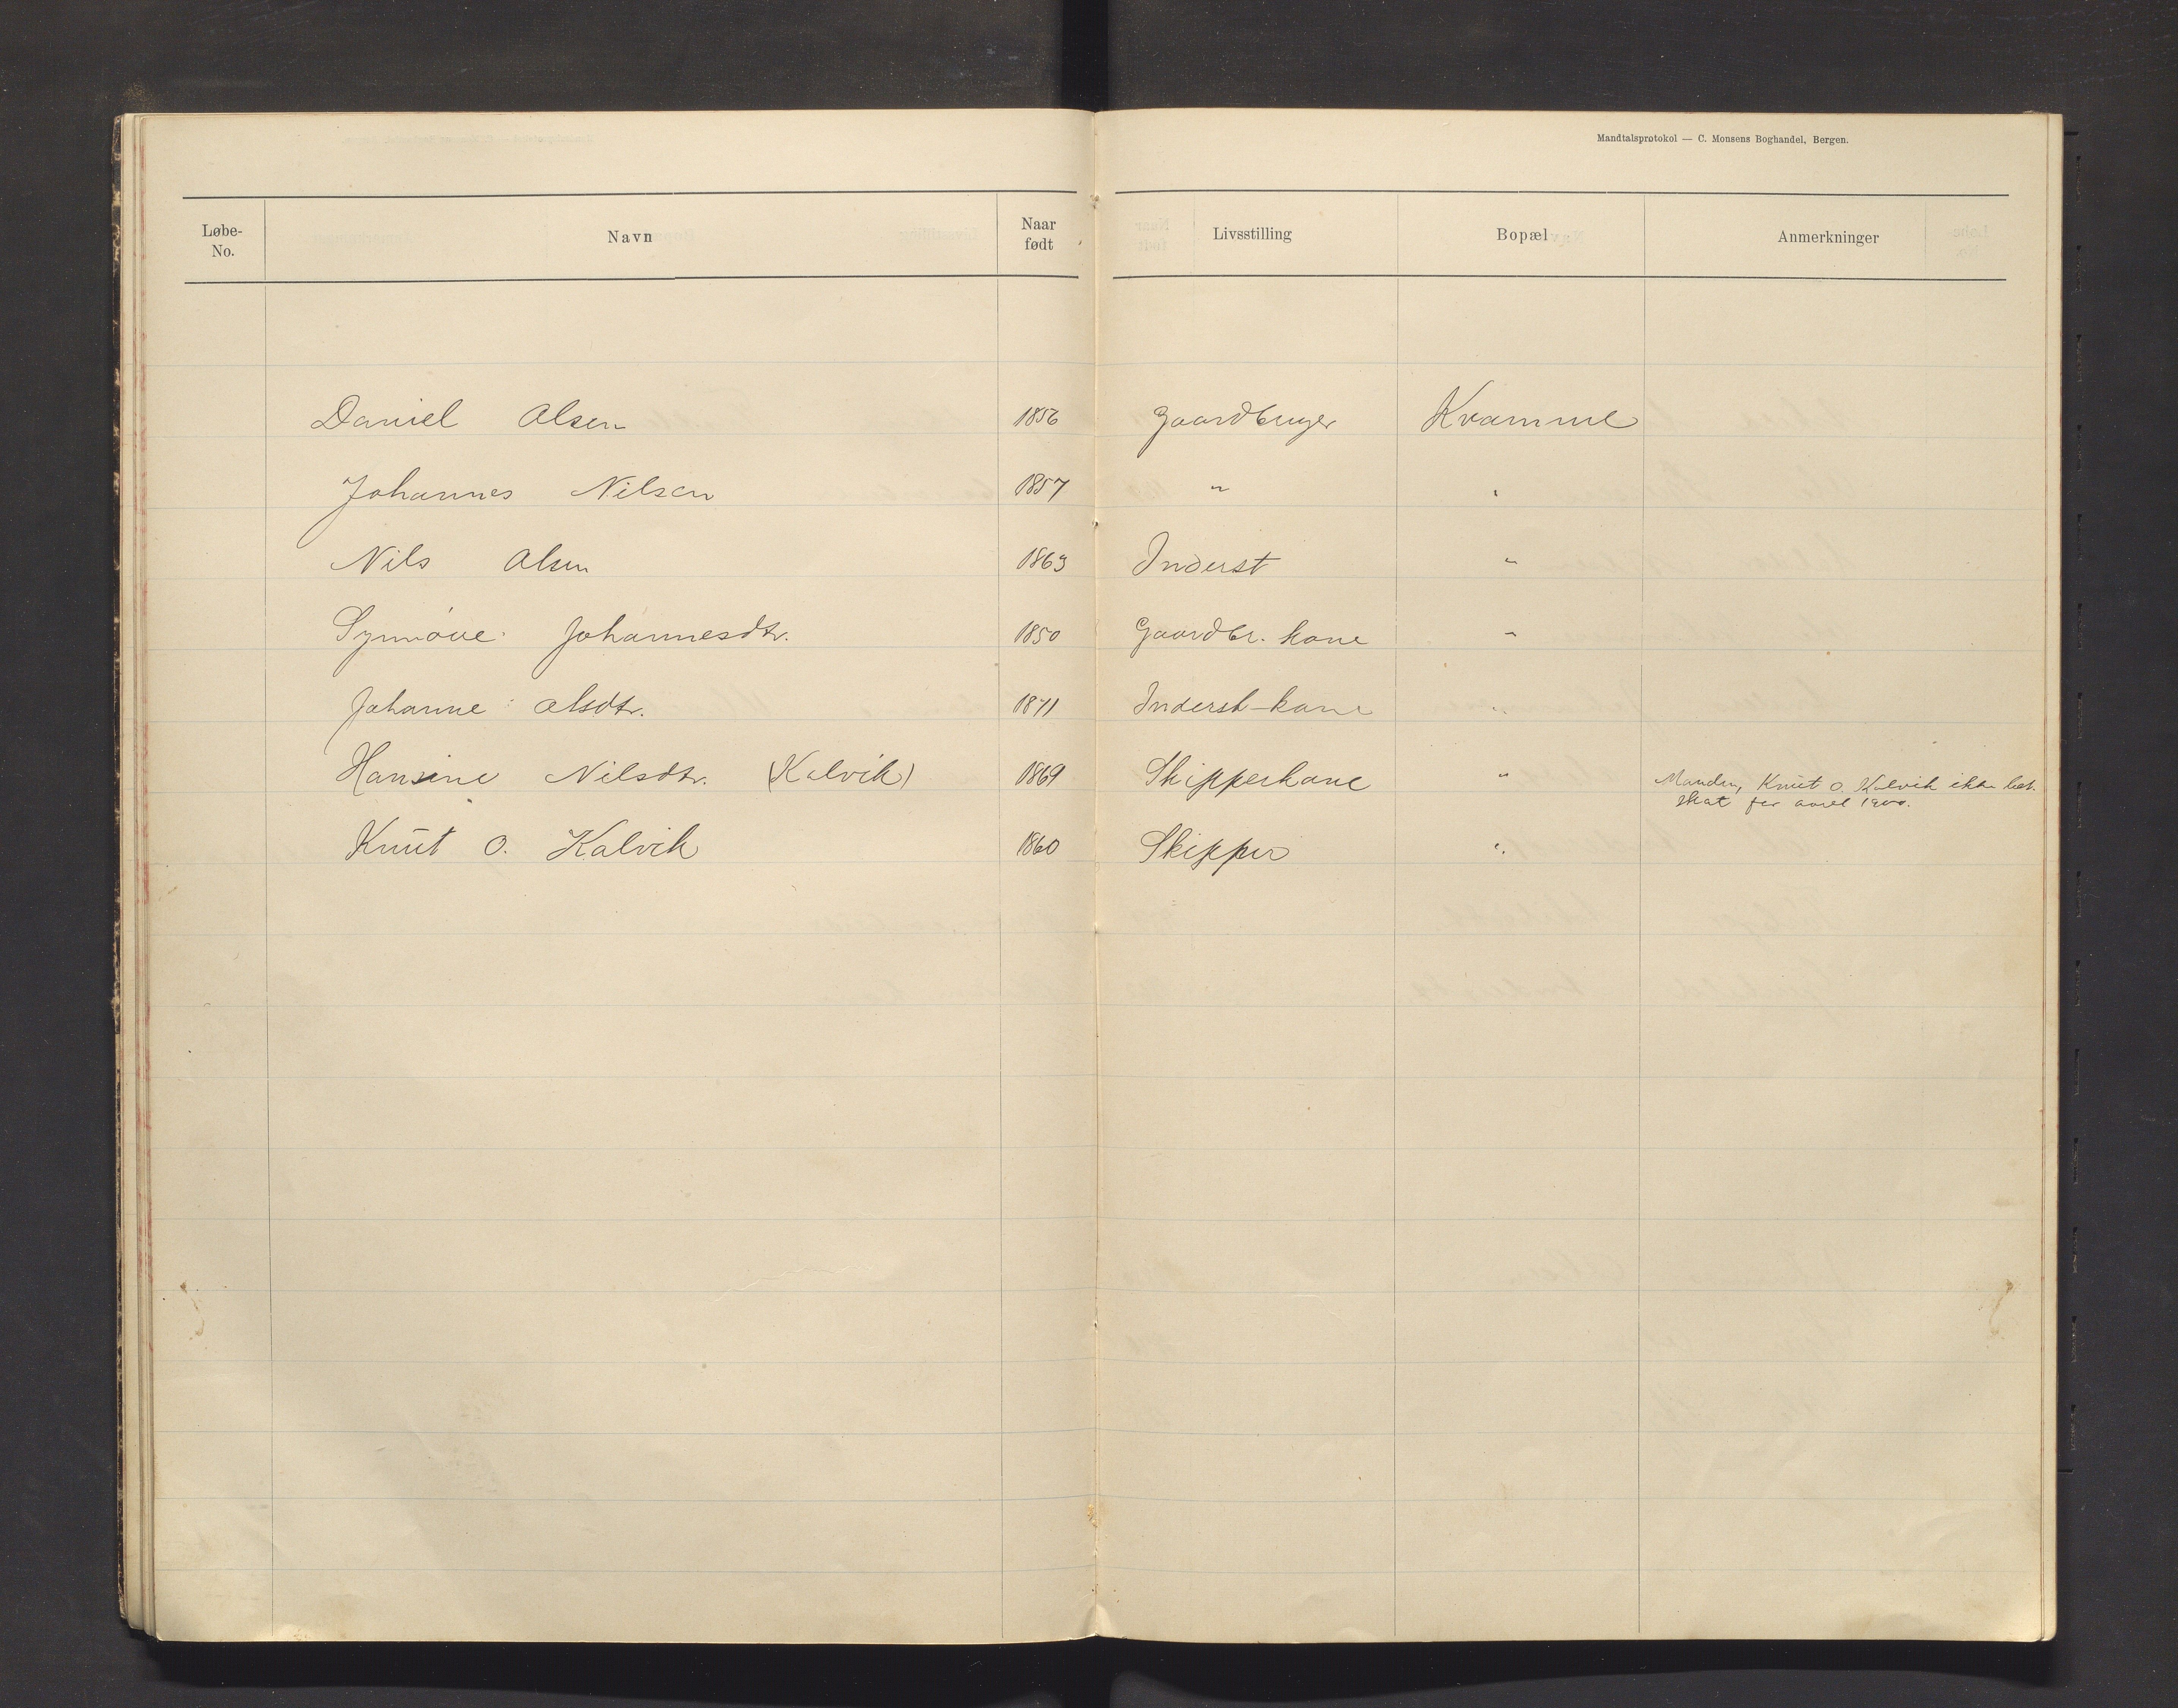 Mandtalsprotokol — C. Monsens Boghandel, Bergen.
Løbe-No. Navn Naar født Livsstilling Bopæl Anmerkninger
Daniel Olsen 1856 Gaardbruger Kvamme
Johannes Nilsen 1857 " "
Nils Olsen 1863 Inderst "
Synnøve Johannesdtr. 1850 Gaardbr. kone "
Johanne Olsdtr. 1871 Inderst-kone "
Hansine Nilsdtr. (Kalvik) 1869 Skipperkone " Manden, Knut O. Kalvik ikke bet.
skat for aaret 1900.
Knut O. Kalvik 1860 Skipper "